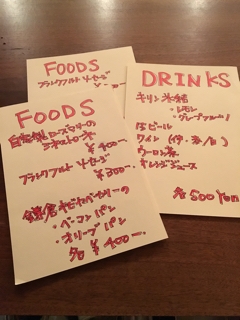 FOODS
フランクフルトソーセージ
FOODS
自家製ローズマリーの
¥400ー
フランクフルトソーセージ
¥300ー
鎌倉
・ベーコンパン
・オリーブパン
各¥400ー
DRINKS
キリン氷結
・レモン
・グレープフルーツ
生ビール
ワイン(赤/白)
ウーロン茶
オレンジジュース
各500yen